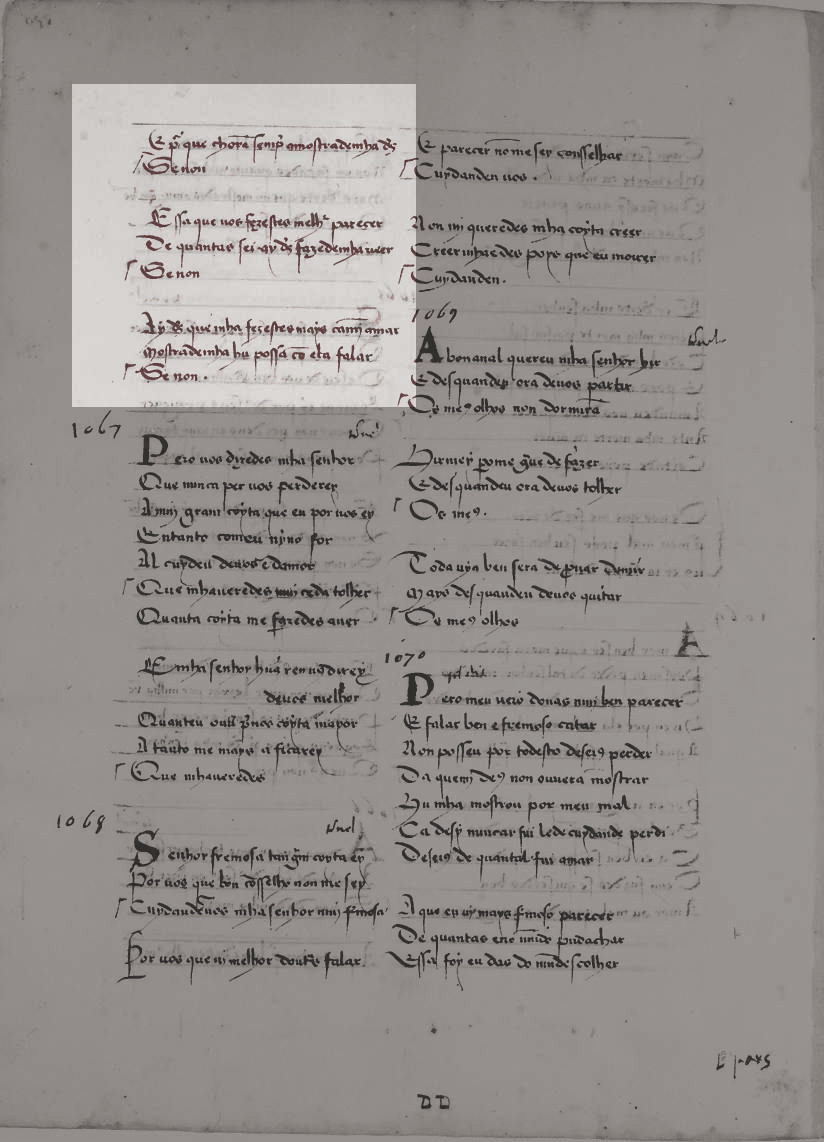 E p̃ que chorã semp̃ amostrademha d̃s
Se non
Essa que uos fezestes melh̃ pareçer
De quantas sei ay d̃s fazedemha ueer
Se non
Ay d̃s que mha fezestes mays camĩ amar
Mostrademha hu possa cõ ela falar
Se non .
1067
Pero uos dizedes mha senhor
Que nunca per uos perderey
A mui gram coyta que eu por uos ey
Entanto comeu uyuo for
Al cuydeu deuos e damor
Que mhaueredes mui ceda tolher
Quanta coyta me fazedes auer
E mha senhor hũa ren uos direy
deuos melhor
Quanteu ouũ coyta mayor
A tanto me mays a ficarey
Que mhaueredes
1068
Senhor fremosa tan gm̃ coyta ey
Por uos que bõn cõsselho non me sey
Cuydandeuos mha senhor mui fmosa
Por uos que ui melhor doutrs falar
E parecer nõ me sey consselhar
Cuydanden uos .
Non mi queredes mha coyta creer
Creer mhaedes poys que eu morrer
Cuydanden .
1069
A bonanal quereu mha senhor hir
E desquandeu ora deuos partir
Os me9 olhos non dormirã
Hirmey pome gue de fazer
E desquandeu ora deuos tolher
Os me9 .
Toda uya ben sera de puar
Mays desquandeu deuos quitar
Os me9 olhos
1070
Pero meu ueio donas mui ben parecer
E falar ben e fremoso catar
Non posseu por todesto deseio perder
Da quem de9 non ouuera mostrar
Hu mha mostrou por meu mal
Ca desy nuncar fui lede cuydande perdi
Deseio de quantal fui amar
A que eu uy mays fmoso parecer
De quantas eno mũdo pudachar
Essa foy eu das do mũdescolher